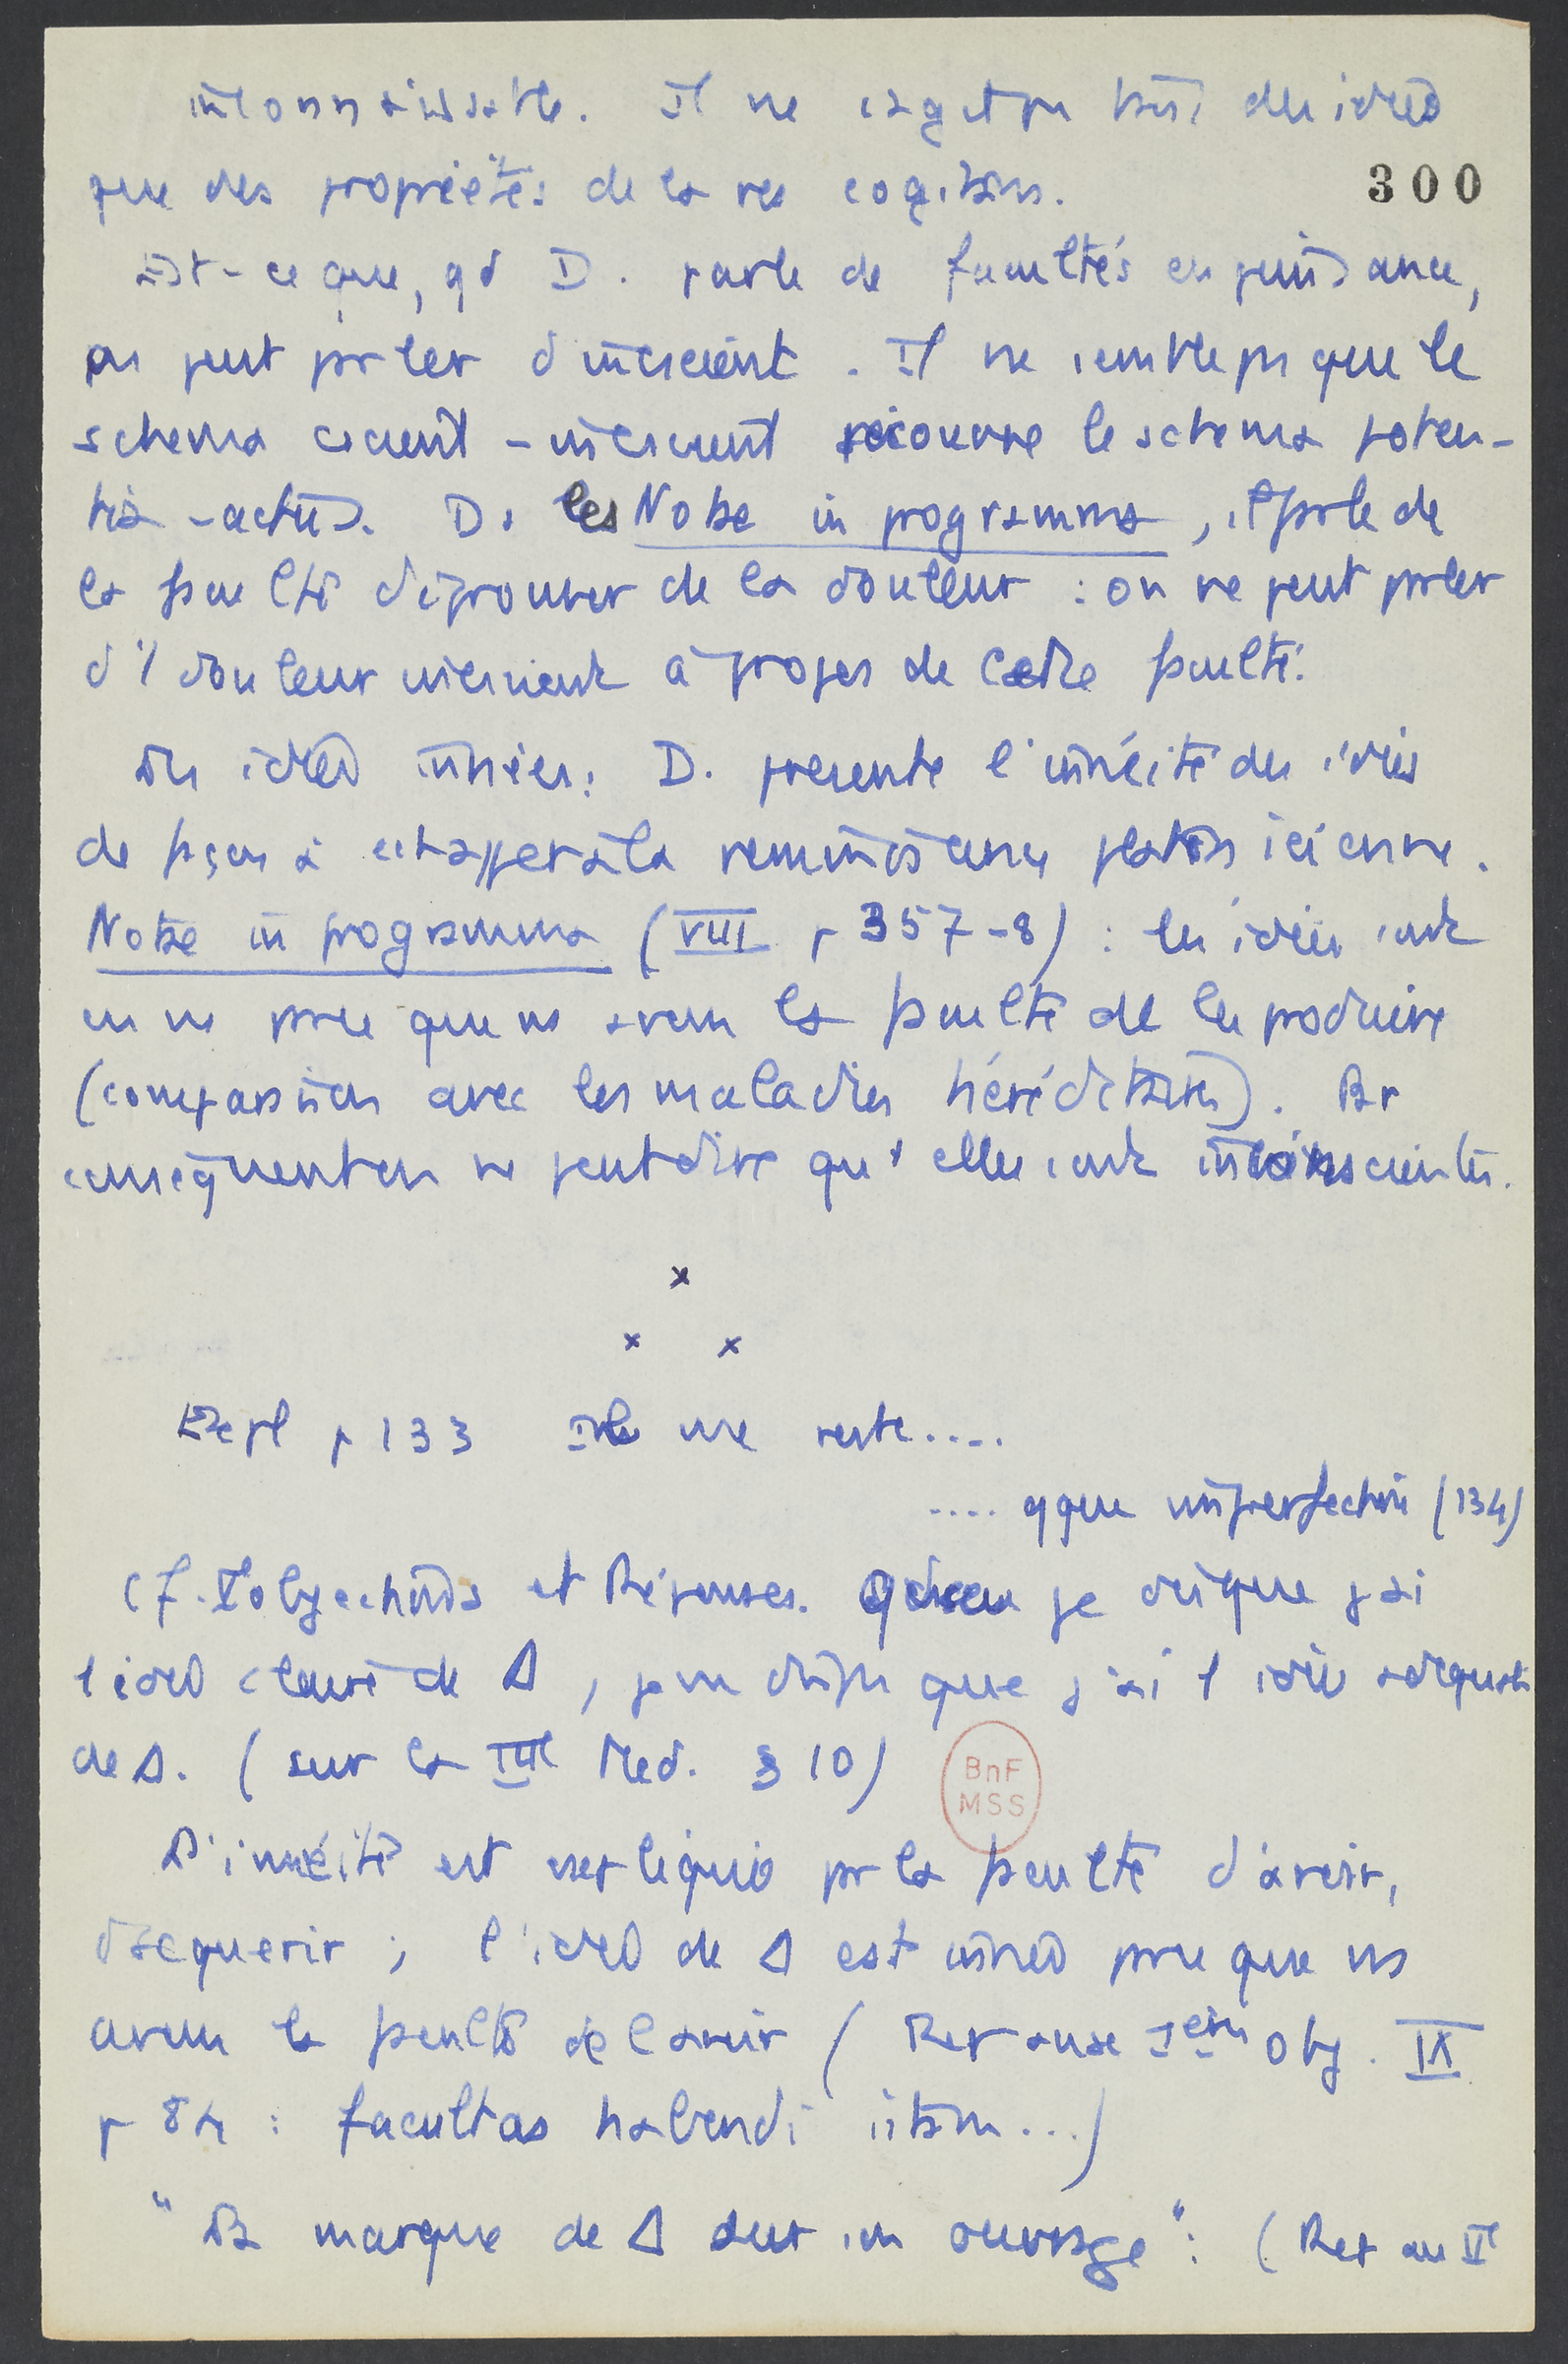 inconnaissable. Il ne s'agit pr tant des idées
que des propriétés de la res cogitans.
300
Est-ce que, qd D. parle de facultés en puissance,
on peut parler d'inconscient. Il ne semble pas que le
schema conscient-inconscient recouvre le schema poten-
tia-actus. Ds les Notae in programma, il parle de
la faculté d'éprouver de la douleur : on ne peut parler
d'1 douleur inconsciente à propos de cette faculté.
Les idées innées : D. presente l'innéité des idées
de façon à echapper à la reminiscence platonicienne.
Notae in programma (VIII p 357-8) : les idées sont
en ns parce que ns avons la faculté de les produire
(comparaison avec les maladies héréditaires). Par
consequent on ne peut dire qu'elles sont inconscientes.
x
x x
Expl p 133 Il me reste....
.... qque imperfection (134)
Cf. V objections et Réponses. Qd je dis que j'ai
l'idée claire de Δ, je ne dis pas que j'ai l'idée adequate
de Δ. (sur la IIIe Med. § 10)
BnF
MSS
L'innéité est expliquée par la faculté d'avoir,
d'acquerir ; l'idée de Δ est innée parce que ns
avons la faculté de l'avoir (Reponse Ieres Obj. IX
p 84 : facultas habendi istam...)
"La marque de Δ sur son ouvrage" : (Rep aux Ve